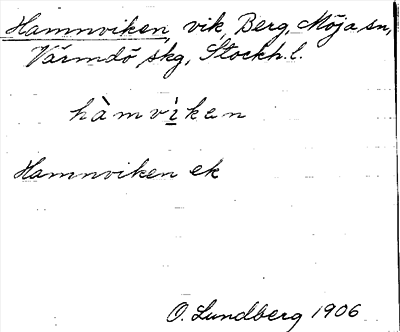 Hamnviken, vik, Berg, Möja sn,
Värmdö skg, Stockh. l.
hàmvìken
Hamnviken ek
O. Lundberg 1906